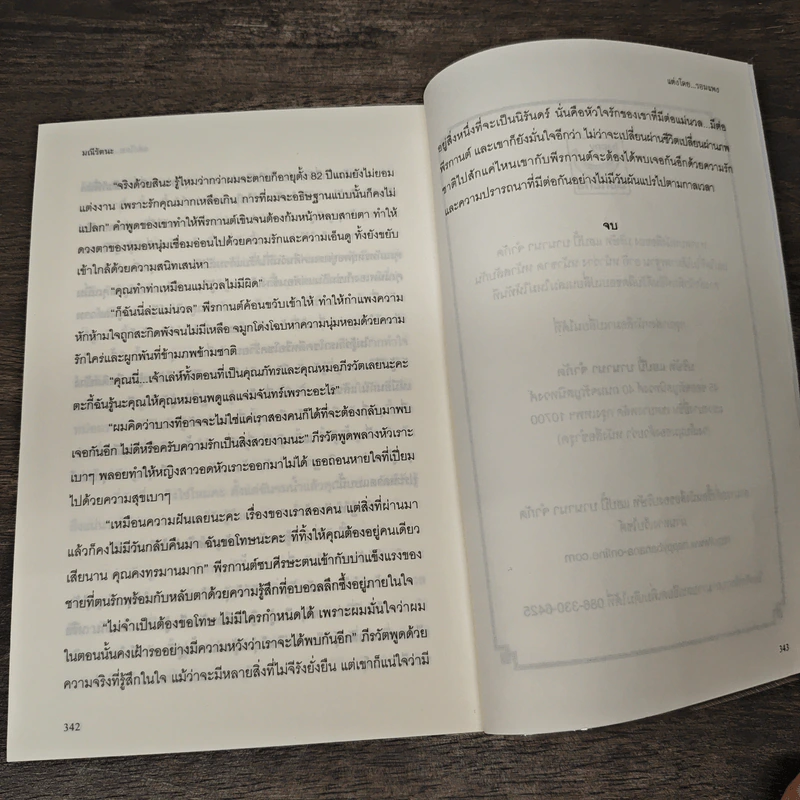 มณีรัตนะ
“จริงด้วยสินะ รู้ไหมว่ากว่าผมจะตายก็อายุตั้ง 82 ปีแถมยังไม่ยอม
แต่งงาน เพราะรักคุณมากเหลือเกิน การที่ผมจะอธิษฐานแบบนั้นก็คงไม่
แปลก” คำพูดของเขาทำให้พีรกานต์เขินจนต้องก้มหน้าหลบสายตา ทำให้
ดวงตาของหมอหนุ่มเชื่อมอ่อนไปด้วยความรักและความเอ็นดู ทั้งยังขยับ
เข้าใกล้ด้วยความสนิทเสน่หา
“คุณทำท่าเหมือนแม่นวลไม่มีผิด”
“ก็ฉันนี่ล่ะแม่นวล” พีรกานต์ค้อนขวับเข้าให้ ทำให้กำแพงความ
หักห้ามใจถูกสะกิดพังจนไม่มีเหลือ จมูกโด่งโฉบหาความนุ่มหอมด้วยความ
รักใคร่และผูกพันที่ข้ามภพข้ามชาติ
“คุณนี่...เจ้าเล่ห์ทั้งตอนที่เป็นคุณภัทรและคุณหมอภีรวัตเลยนะคะ
ตะกี้ฉันรู้นะคุณให้คุณหมอนพดูแลแจ่มจันทร์เพราะอะไร”
“ผมคิดว่าบางทีอาจจะไม่ใช่แค่เราสองคนก็ได้ที่จะต้องกลับมาพบ
เจอกันอีก ไม่ดีหรือครับความรักเป็นสิ่งสวยงามนะ” ภีรวัตพูดพลางหัวเราะ
เบาๆ พลอยทำให้หญิงสาวอดหัวเราะออกมาไม่ได้ เธอถอนหายใจที่เปี่ยม
ไปด้วยความสุขเบาๆ
“เหมือนความฝันเลยนะคะ เรื่องของเราสองคน แต่สิ่งที่ผ่านมา
แล้วก็คงไม่มีวันกลับคืนมา ฉันขอโทษนะคะ ที่ทิ้งให้คุณต้องอยู่คนเดียว
เสียนาน คุณคงทรมานมาก” พีรกานต์ซบศีรษะตนเข้ากับบ่าแข็งแรงของ
ชายที่ตนรักพร้อมกับหลับตาด้วยความรู้สึกที่อบอวลลึกซึ้งอยู่ภายในใจ
“ไม่จำเป็นต้องขอโทษ ไม่มีใครกำหนดได้ เพราะผมมั่นใจว่าผม
ในตอนนั้นคงเฝ้ารออย่างมีความหวังว่าเราจะได้พบกันอีก” ภีรวัตพูดด้วย
ความจริงที่รู้สึกในใจ แม้ว่าจะมีหลายสิ่งที่ไม่จีรังยั่งยืน แต่เขาก็แน่ใจว่ามี
342
แต่งโดย...รอมแพง
อยู่สิ่งหนึ่งที่จะเป็นนิรันดร์ นั่นคือหัวใจรักของเขาที่มีต่อแม่นวล...มีต่อ
พีรกานต์ และเขาก็ยังมั่นใจอีกว่า ไม่ว่าจะเปลี่ยนผ่านชีวิตเปลี่ยนผ่านภพ
ชาติไปสักแค่ไหนเขากับพีรกานต์จะต้องได้พบเจอกันอีกด้วยความรัก
และความปรารถนาที่มีต่อกันอย่างไม่มีวันผันแปรไปตามกาลเวลา
จบ
343